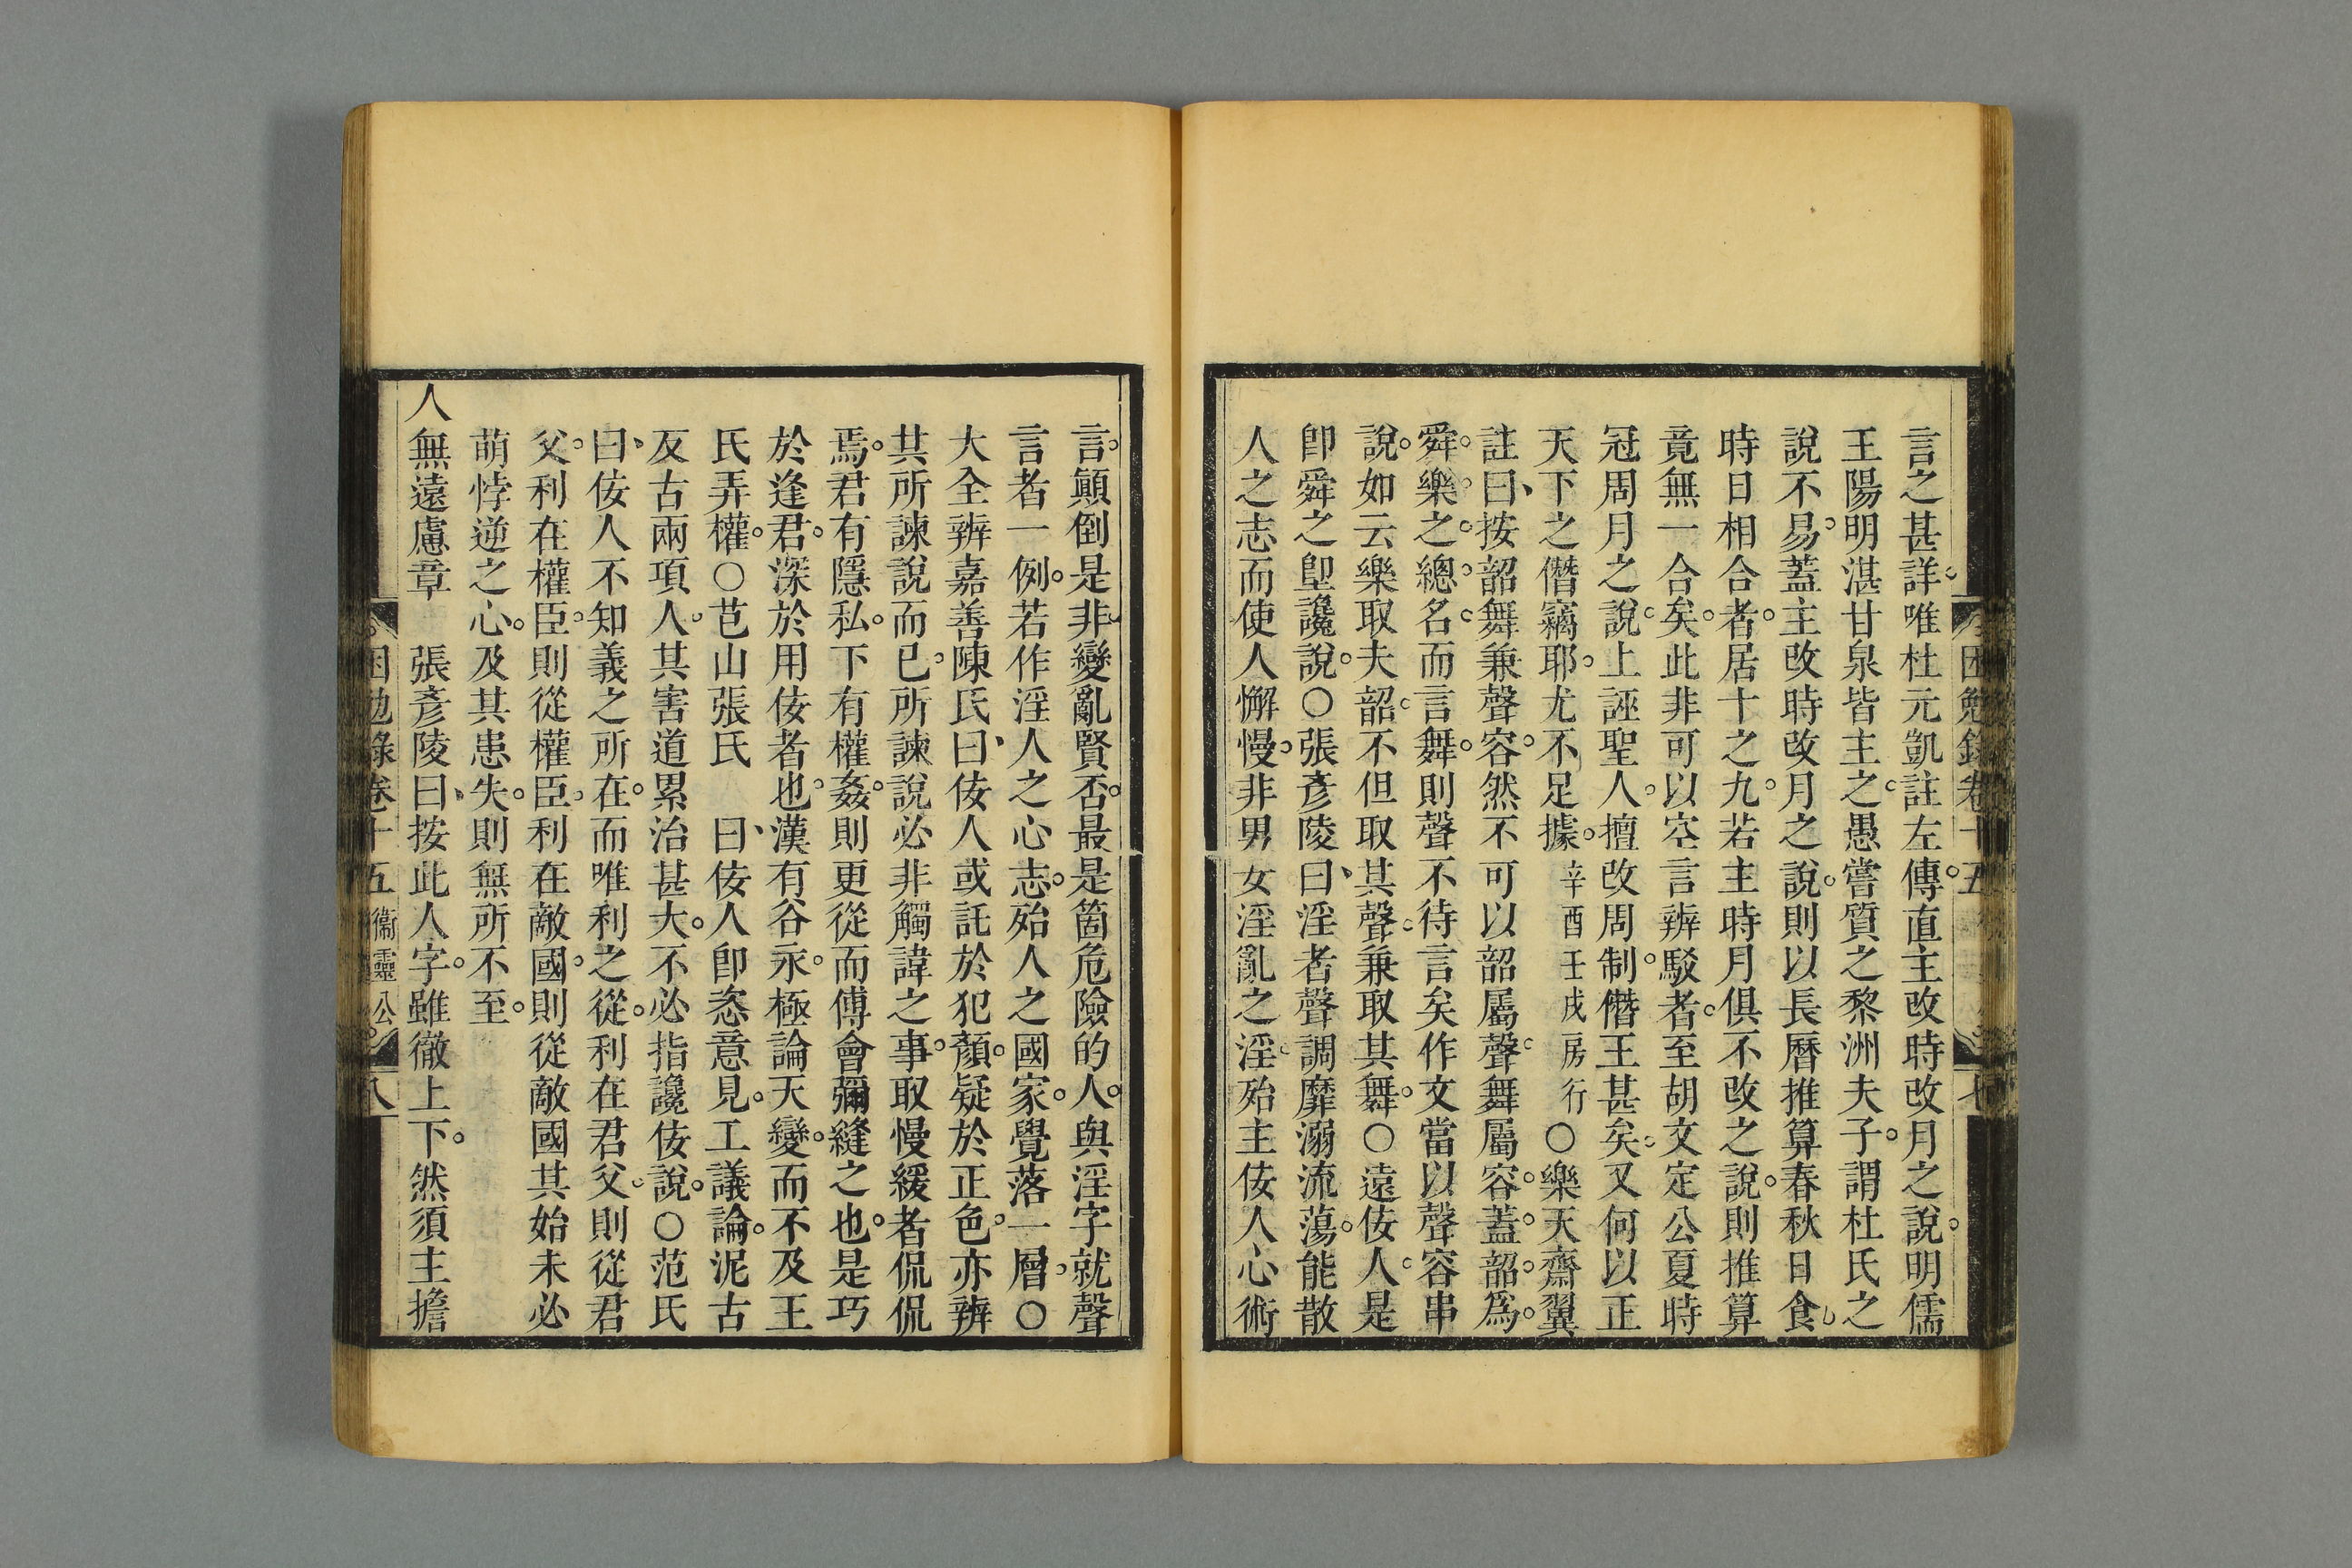 言之甚詳唯杜元凱註左傳直主改時改月之說明儒
王陽明湛甘泉皆主之愚嘗質之黎洲夫子謂杜氏之
說不易蓋主改時改月之說則以長曆推算春秋日食
時日相合者居十之九若主時月俱不改之說則推算
竟無一合矣此非可以空言辨駁者至胡文定公夏時
冠周月之說上誣聖人擅改周制僭王甚矣又何以正
天下之僭竊耶尤不足據辛酉壬戌房行○樂天齋翼
註曰按韶舞兼聲容然不可以韶屬聲舞屬容蓋韶爲
舜樂之總名而言舞則聲不待言矣作文當以聲容串
說如云樂取夫韶不但取其聲兼取其舞○遠佞人是
卽舜之堲讒說○張彥陵曰淫者聲調靡溺流蕩能散
人之志而使人懈慢非男女淫亂之淫殆主佞人心術
困勉錄卷十五
七
言顚倒是非變亂賢否最是箇危險的人與淫字就聲
言者一例若作淫人之心志殆人之國家覺落一層○
大全辨嘉善陳氏曰佞人或託於犯顏疑於正色亦辨
其所諫說而已所諫說必非觸諱之事取慢緩者侃侃
焉君有隱私下有權姦則更從而傅會彌縫之也是巧
於逢君深於用佞者也漢有谷永極論天變而不及王
氏弄權○芑山張氏曰佞人卽恣意見工議論泥古
反古兩項人其害道累治甚大不必指讒佞說○范氏
曰佞人不知義之所在而唯利之從利在君父則從君
父利在權臣則從權臣利在敵國則從敵國其始未必
萌悖逆之心及其患失則無所不至
人無遠慮章　張彥陵曰按此人字雖徹上下然須主擔
困勉錄卷十五　衞靈公
八